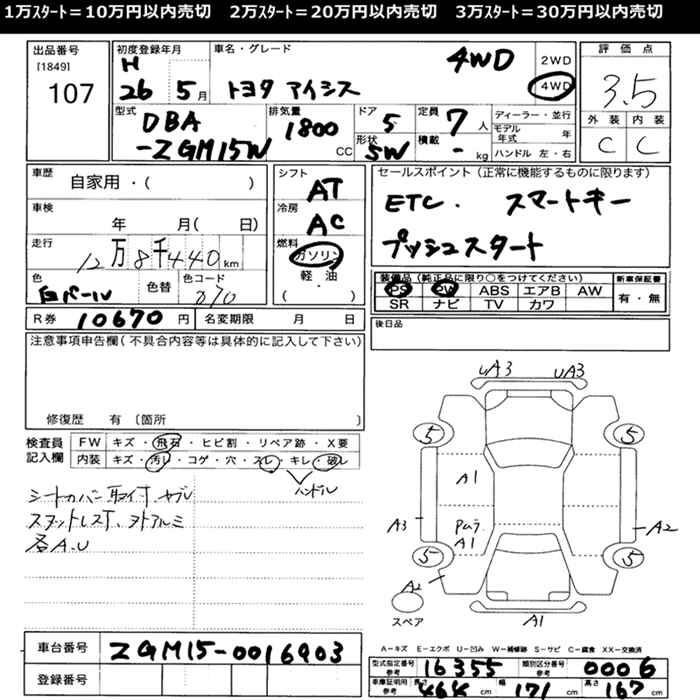 1万ｽﾀｰﾄ＝10万円以内売切　2万ｽﾀｰﾄ＝20万円以内売切　3万ｽﾀｰﾄ＝30万円以内売切
出品番号
[1849]
107
初度登録年月
H
26 5月
車名・グレード
トヨタ アイシス
4WD
2WD
4WD
評価点
3.5
外装 内装
C C
型式
DBA
-ZGM15W
排気量
1800
CC
ドア
5
形状
5W
定員
7人
積載
- kg
ディーラー・並行
モデル年式 年
ハンドル 左・右
車歴
自家用・( )
車検
年 月( 日)
走行
12万8千440km
色
白パール
色替
色コード
070
シフト
AT
冷房
AC
燃料
ガソリン
軽・油
( )
セールスポイント（正常に機能するものに限ります）
ETC. スマートキー
プッシュスタート
装備品（純正品に限り○をつけてください）
PS PW ABS エアB AW
SR ナビ TV カワ
新車保証書
有・無
R券 10670円
名変期限 月 日
後日品
注意事項申告欄(不具合内容等は具体的に記入して下さい)
修復歴 有 〔箇所 〕
検査員
記入欄
FW キズ・飛石・ヒビ割・リペア跡・X要
内装 キズ・汚れ・コゲ・穴・スレ・キレ・破レ
ハンドル
シートカバー取付 ヤブレ
スタットレスT. ヨトアルミ
各A.U
UA3 UA3
5 5
A1
A3
Pムラ
A1
A2
5 5
A2
スペア
A1
A－キズ E－エクボ U－凹み W－補修跡 S－サビ C－腐食 XX－交換済
車台番号 ZGM15-0016903
登録番号
型式指定番号 参考 16355
類別区分番号 参考 0006
車庫証明用 参考 長さ 464 cm 幅 171 cm 高さ 167 cm